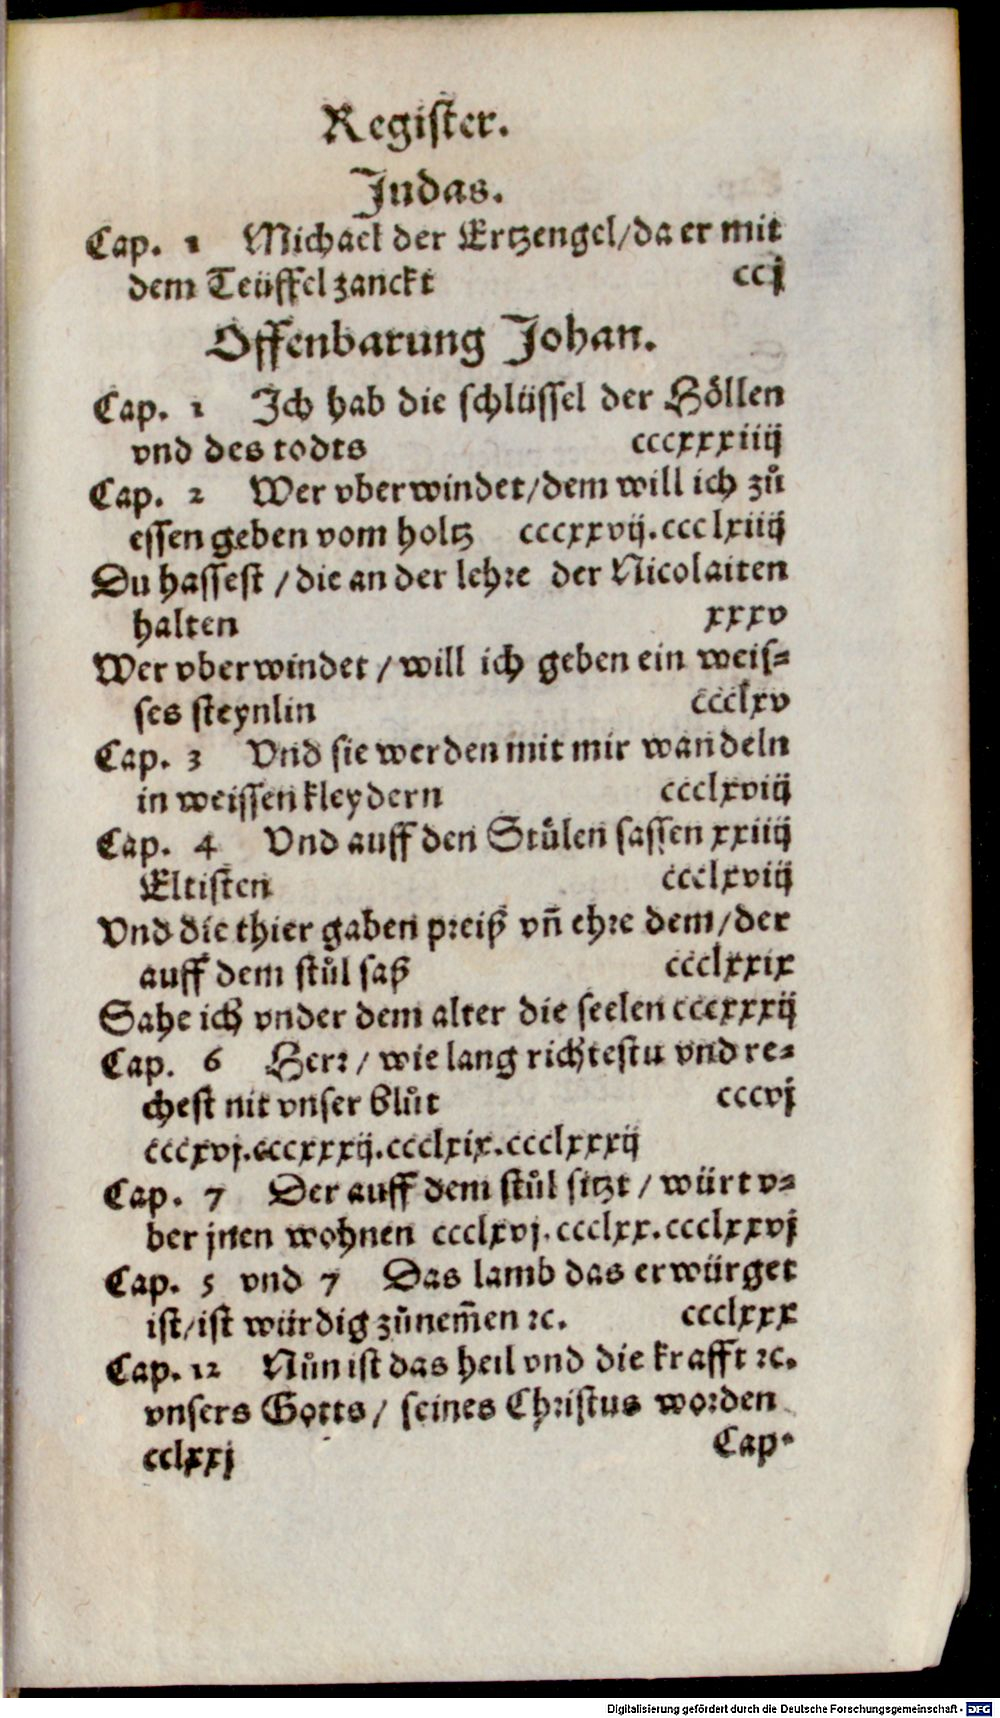 Register.
Judas.
Cap. 1 Michael der Ertzengel/da er mit
dem Teüffel zanckt ccj
Offenbarung Johan.
Cap. 1 Ich hab die schlüssel der Höllen
vnd des todts cccxxxiiij
Cap. 2 Wer vberwindet/dem will ich zů
essen geben vom holtz cccxxvij.ccclxiiij
Du hassest/die an der lehre der Nicolaiten
halten xxxv
Wer vberwindet/will ich geben ein weis-
ses steynlin ccclxv
Cap. 3 Vnd sie werden mit mir wandeln
in weissen kleydern ccclxviij
Cap. 4 Vnd auff den Stůlen sassen xxiiij
Eltisten ccclxviij
Vnd die thier gaben preiß vñ ehre dem/der
auff dem stůl saß ccclxxix
Sahe ich vnder dem alter die seelen cccxxxij
Cap. 6 Herr/wie lang richtestu vnd re-
chest nit vnser blůt cccvj
cccxvj.cccxxxij.ccclxix.ccclxxxij
Cap. 7 Der auff dem stůl sitzt/würt v-
ber jnen wohnen ccclxvj.ccclxx.ccclxxvj
Cap. 5 vnd 7 Das lamb das erwürget
ist/ist würdig zůnem̃en ꝛc. ccclxxx
Cap. 12 Nůn ist das heil vnd die krafft ꝛc.
vnsers Gotts/seines Christus worden
cclxxj Cap.
Digitalisierung gefördert durch die Deutsche Forschungsgemeinschaft - DFG